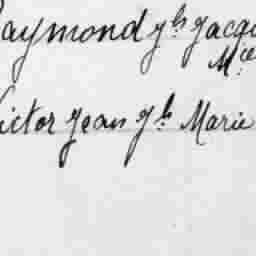 Raymond Jh Jacq
Mie
Victor Jean Jh Marie